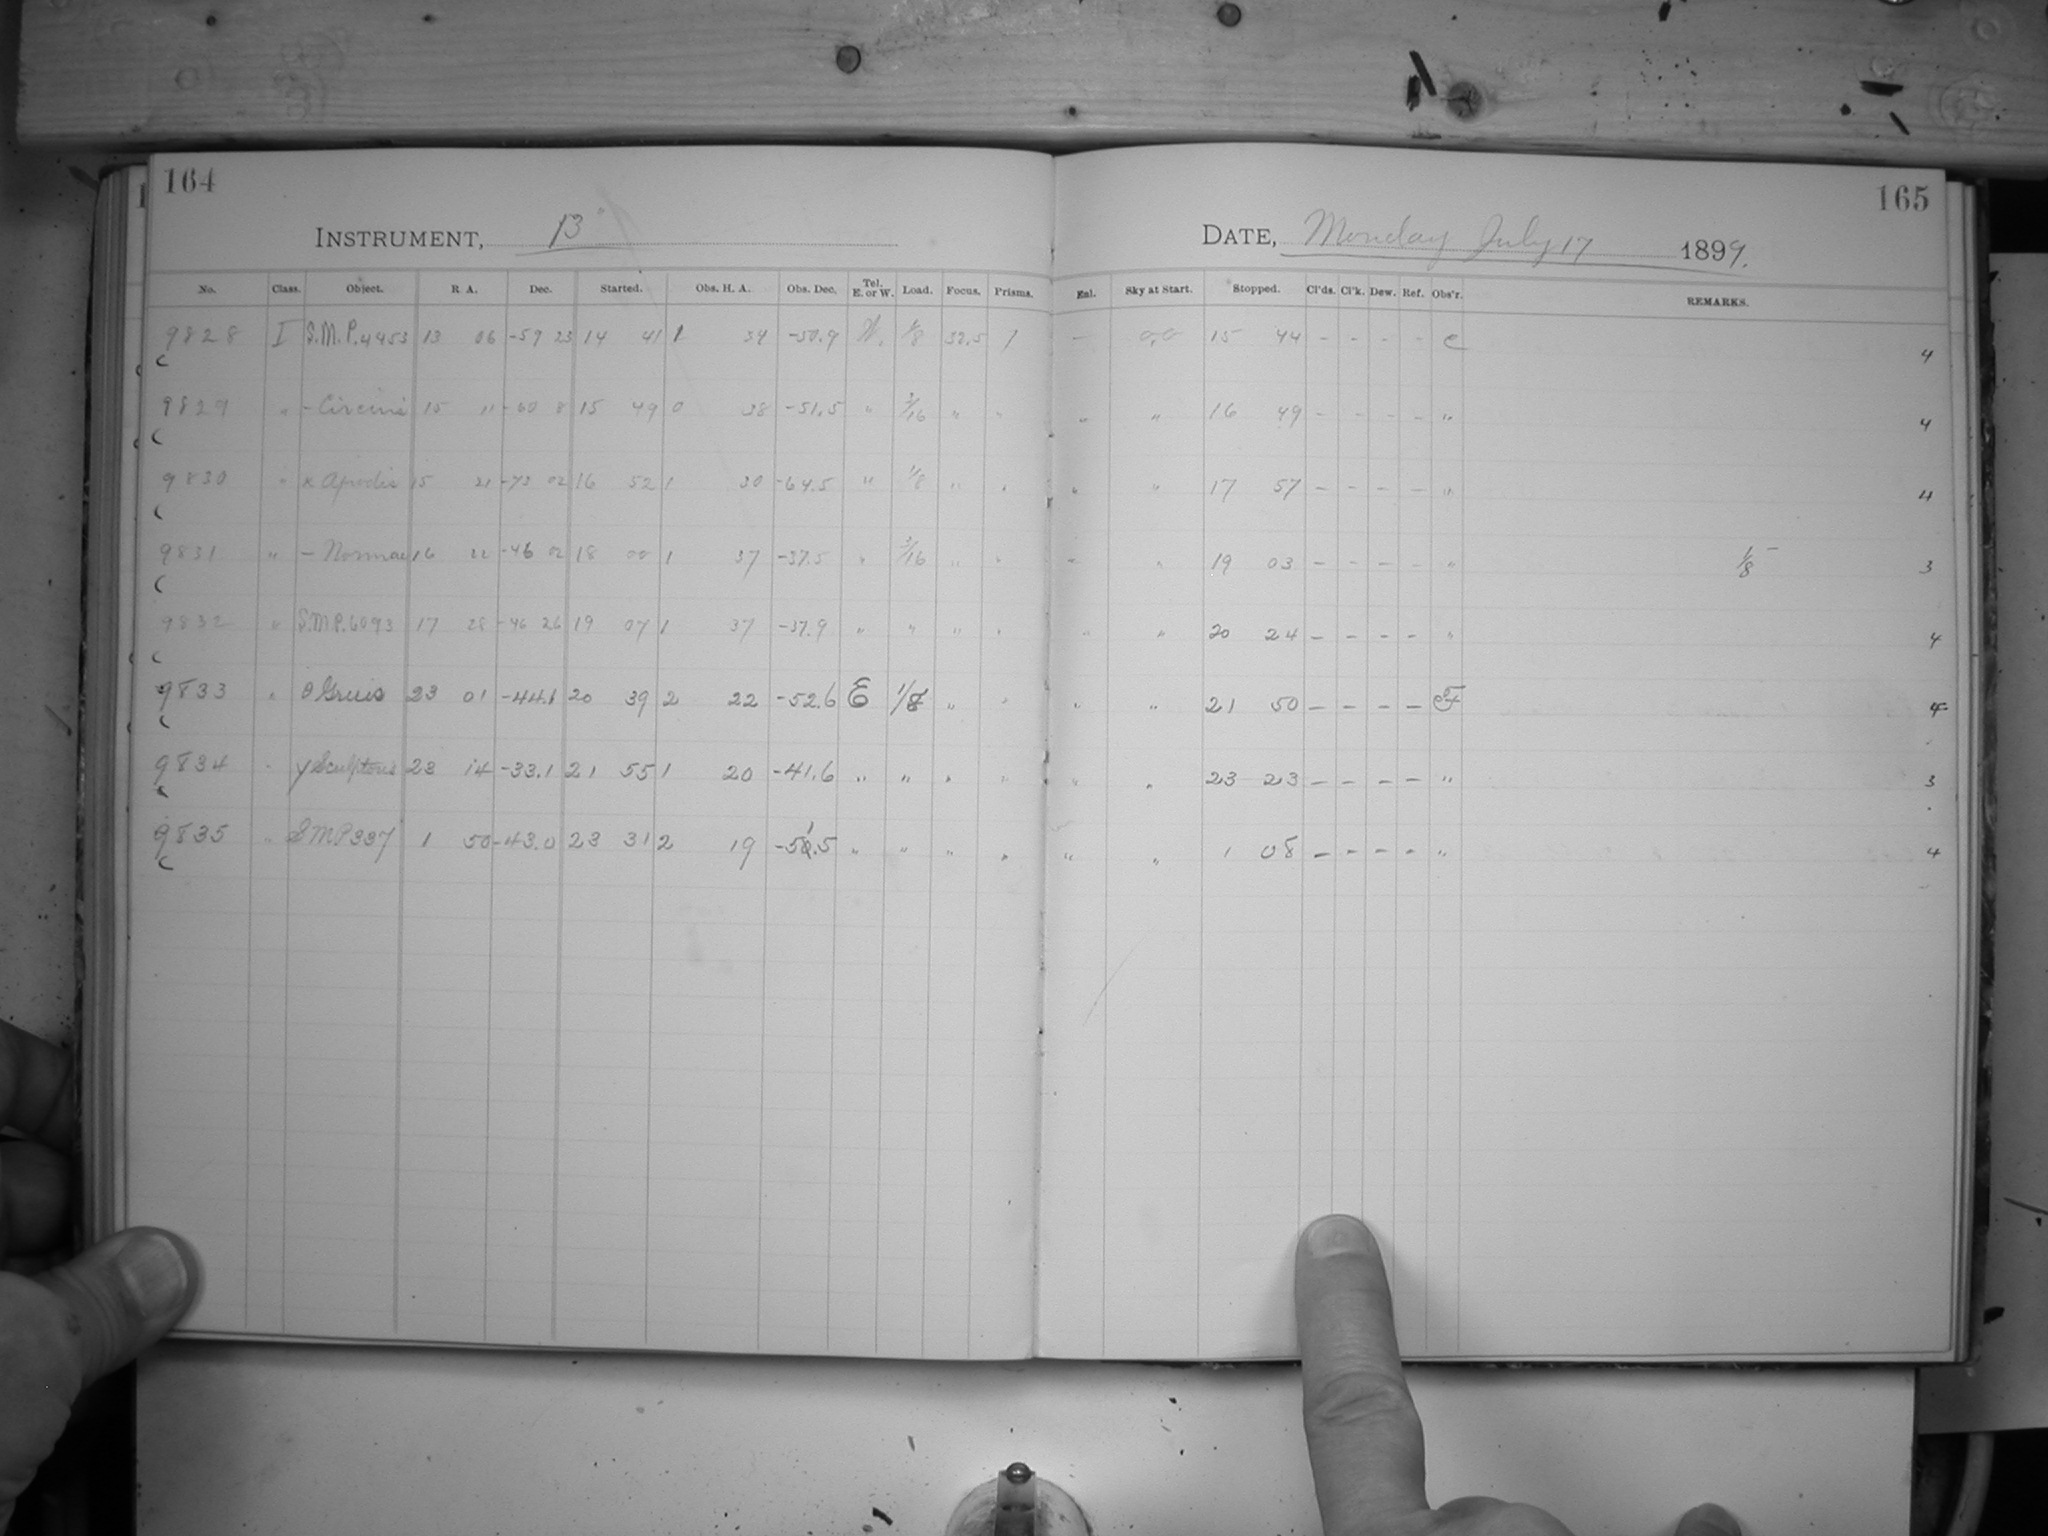 164
165
INSTRUMENT, 13"
DATE, Monday July 17 1899.
No. Class. Object. R A. Dec. Started. Obs. H. A. Obs. Dec. Tel. E. or W. Load. Focus. Prisms. Enl. Sky at Start. Stopped. Cl'ds. Cl'k. Dew. Ref. Obs'r. REMARKS.
9828 I S.M.P. 4453 13 06 -59 23 14 41 1 34 -50.9 W. 1/8 32.5 1 - 0,0 15 44 - - - - C 4
9829 " - Circini 15 11 -60 8 15 49 0 38 -51.5 " 3/16 " " " " 16 49 - - - - " 4
9830 " κ Apodis 15 21 -73 02 16 52 1 30 -64.5 " 1/8 " " " " 17 57 - - - - " 4
9831 " - Normae 16 22 -46 02 18 00 1 37 -37.5 " 3/16 " " " " 19 03 - - - - " 1/8 3
9832 " S.M.P. 6093 17 28 -46 26 19 07 1 37 -37.9 " " " " " " 20 24 - - - - " 4
9833 " θ Gruis 23 01 -44.1 20 39 2 22 -52.6 E 1/8 " " " " 21 50 - - - - 4
9834 " γ Sculptoris 23 14 -33.1 21 55 1 20 -41.6 " " " " " " 23 23 - - - - " 3
9835 " SMP 337 1 50 -43.0 23 31 2 19 -51.5 " " " " " " 1 08 - - - - " 4